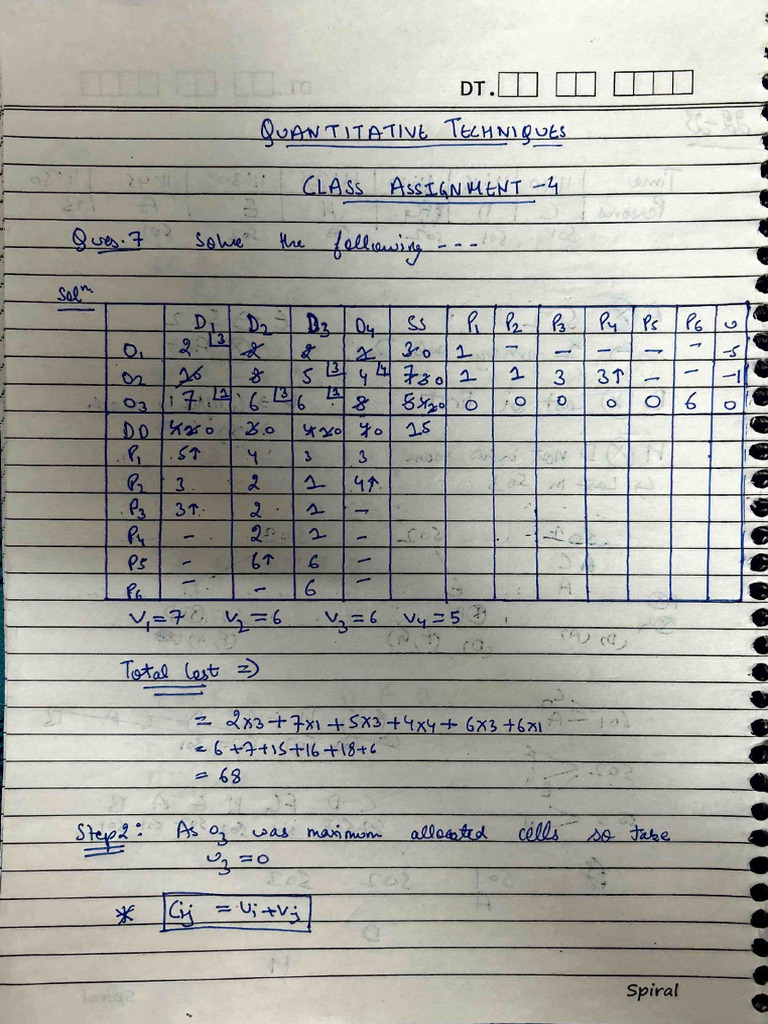 DT.
QUANTITATIVE TECHNIQUES
CLASS ASSIGNMENT - 4
Ques. 7 Solve the following ---
Solⁿ
D1 D2 D3 D4 SS P1 P2 P3 P4 P5 P6 U
O1 2 3 2 2 1 3 0 1 - - - - - -5
O2 10 8 5 3 4 4 7 3 0 1 1 3 3↑ - - -1
O3 7 1 6 3 6 1 8 5 4 0 0 0 0 0 0 6 0
DD 4 1 0 3 0 4 1 0 4 0 15
P1 5↑ 4 3 3
P2 3 2 1 4↑
P3 3↑ 2 1 -
P4 - 2 1 -
P5 - 6↑ 6 -
P6 - - 6 -
V1=7 V2=6 V3=6 V4=5
Total Cost =)
= 2x3+7x1+5x3+4x4+6x3+6x1
= 6+7+15+16+18+6
= 68
Step 2: As O3 was maximum allocated cells so take
U3 = 0
* Cij = Ui+Vj
Spiral